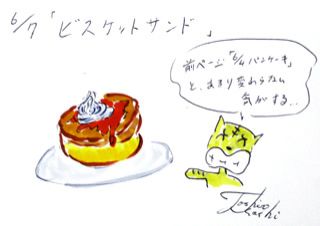 6/7「ビスケットサンド」
前ページ「6/4パンケーキ」
と、あまり変わらない
気がする…
Toshiko